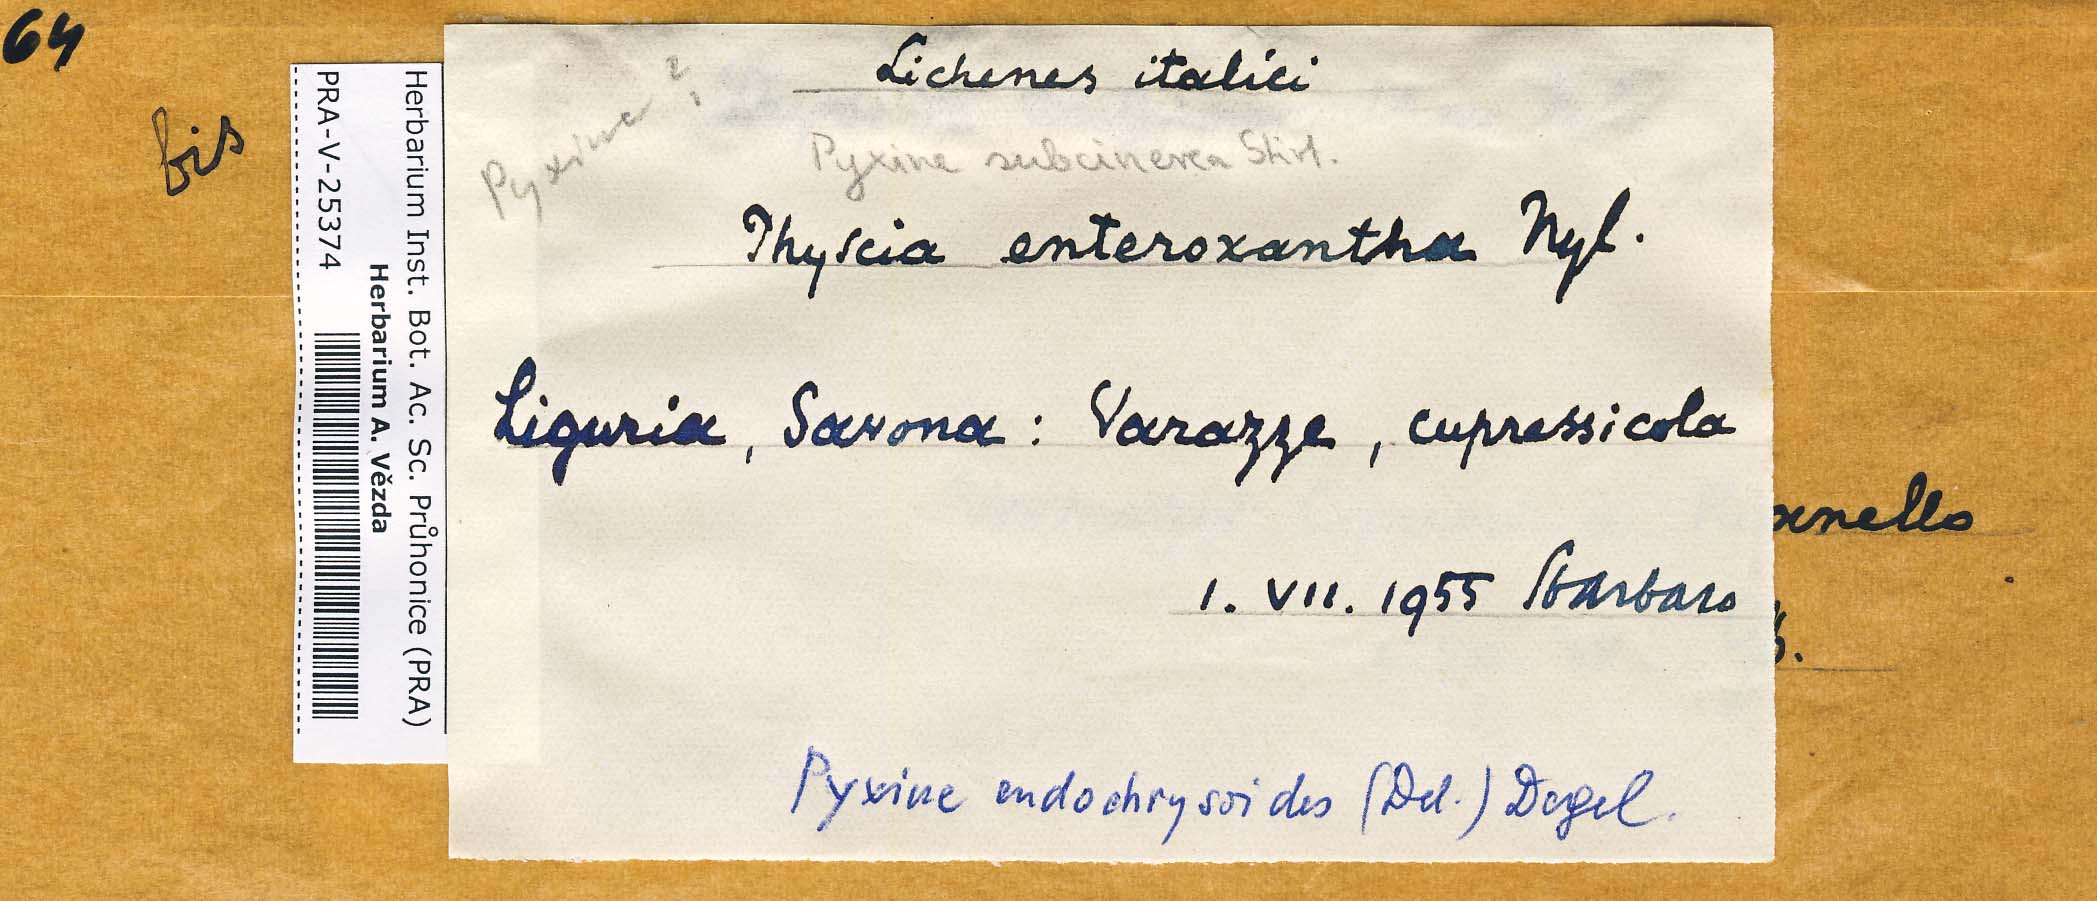 64
bis
Herbarium Inst. Bot. Ac. Sc. Průhonice (PRA)
Herbarium A. Vězda
PRA-V-25374
Lichenes italici
Pyxine ?
Pyxine subcinerea Stirt.
Physcia enteroxantha Nyl.
Liguria, Savona: Varazze, cupressicola
1. VII. 1955 Sbarbaro
Pyxine endochrysoides (Del.) Degel.